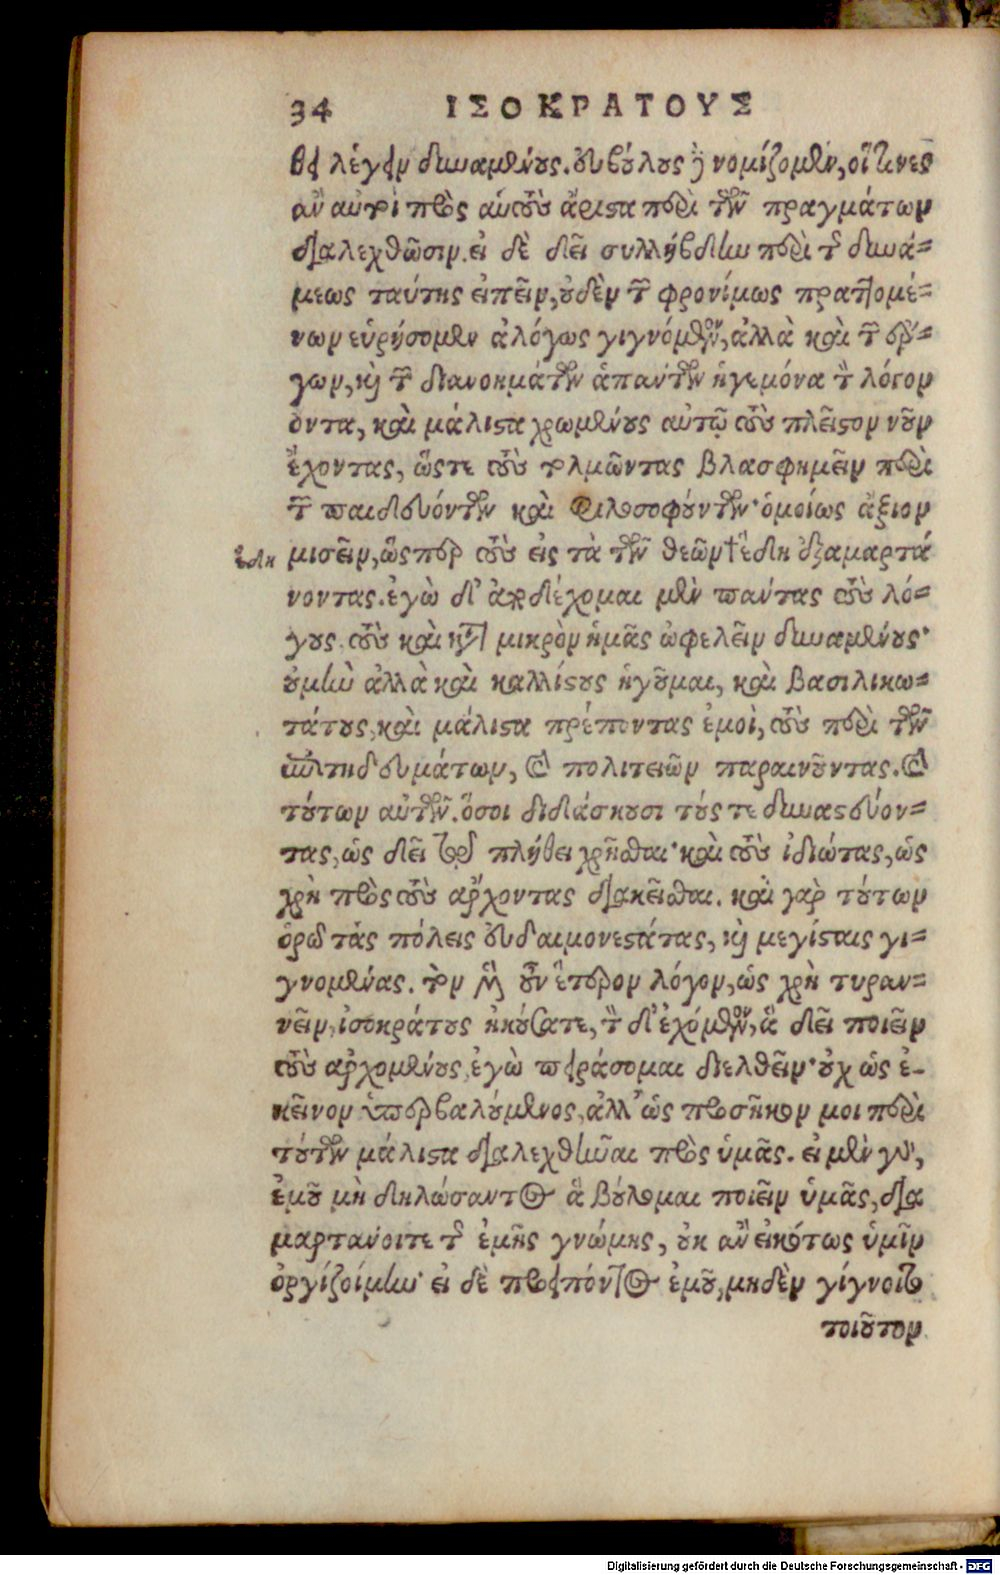 34 ΙΣΟΚΡΑΤΟΥΣ
θει λέγειν δυναμένους. εὐβούλους δὲ νομίζομεν, οἵτινες
ἂν αὐτοὶ πρὸς αὑτοὺς ἄριστα περὶ τῶν πραγμάτων
διαλεχθῶσιν. εἰ δὲ δεῖ συλλήβδην περὶ τῆς δυνά-
μεως ταύτης εἰπεῖν, οὐδὲν τῶν φρονίμως πραττομέ-
νων εὑρήσομεν ἀλόγως γιγνόμενον, ἀλλὰ καὶ τῶν ἔρ-
γων, καὶ τῶν διανοημάτων ἁπάντων ἡγεμόνα τὸν λόγον
ὄντα, καὶ μάλιστα χρωμένους αὐτῷ τοὺς πλεῖστον νοῦν
ἔχοντας, ὥστε τοὺς τολμῶντας βλασφημεῖν περὶ
τῶν παιδευόντων καὶ φιλοσοφούντων· ὁμοίως ἄξιον
ἔδη μισεῖν, ὥσπερ τοὺς εἰς τὰ τῶν θεῶν † ἕδη ἐξαμαρτά
νοντας. ἐγὼ δ' ἀποδέχομαι μὲν πάντας τοὺς λό-
γους, τοὺς καὶ κατὰ μικρὸν ἡμᾶς ὠφελεῖν δυναμένους·
οὐ μὴν ἀλλὰ καὶ καλλίστους ἡγοῦμαι, καὶ βασιλικω-
τάτους, καὶ μάλιστα πρέποντας ἐμοὶ, τοὺς περὶ τῶν
ἐπιτηδευμάτων, καὶ πολιτειῶν παραινοῦντας. καὶ
τούτων αὐτῶν. ὅσοι διδάσκουσι τούς τε δυναστεύον-
τας, ὡς δεῖ τῷ πλήθει χρῆσθαι· καὶ τοὺς ἰδιώτας, ὡς
χρὴ πρὸς τοὺς ἄρχοντας διακεῖσθαι. καὶ γὰρ τούτων
ὁρῶ τὰς πόλεις εὐδαιμονεστάτας, καὶ μεγίσταις γι-
γνομένας. τὸν μὲν οὖν ἕτερον λόγον, ὡς χρὴ τυραν-
νεῖν, ἰσοκράτους ἠκούσατε, τὸν δ' ἐχόμενον, ἃ δεῖ ποιεῖν
τοὺς ἀρχομένους, ἐγὼ πειράσομαι διελθεῖν· οὐχ ὡς ἐ-
κεῖνον ὑπερβαλούμενος, ἀλλ' ὡς προσῆκον μοι περὶ
τούτων μάλιστα διαλεχθῆναι πρὸς ὑμᾶς. εἰ μὲν γὰρ,
ἐμοῦ μὴ δηλώσαντος ἃ βούλομαι ποιεῖν ὑμᾶς, δια
μαρτάνοιτε τῆς ἐμῆς γνώμης, οὐκ ἂν εἰκότως ὑμῖν
ὀργιζοίμην· εἰ δὲ προειπόντος ἐμοῦ, μηδὲν γίγνοιτο
τοιοῦτον
Digitalisierung gefördert durch die Deutsche Forschungsgemeinschaft - DFG